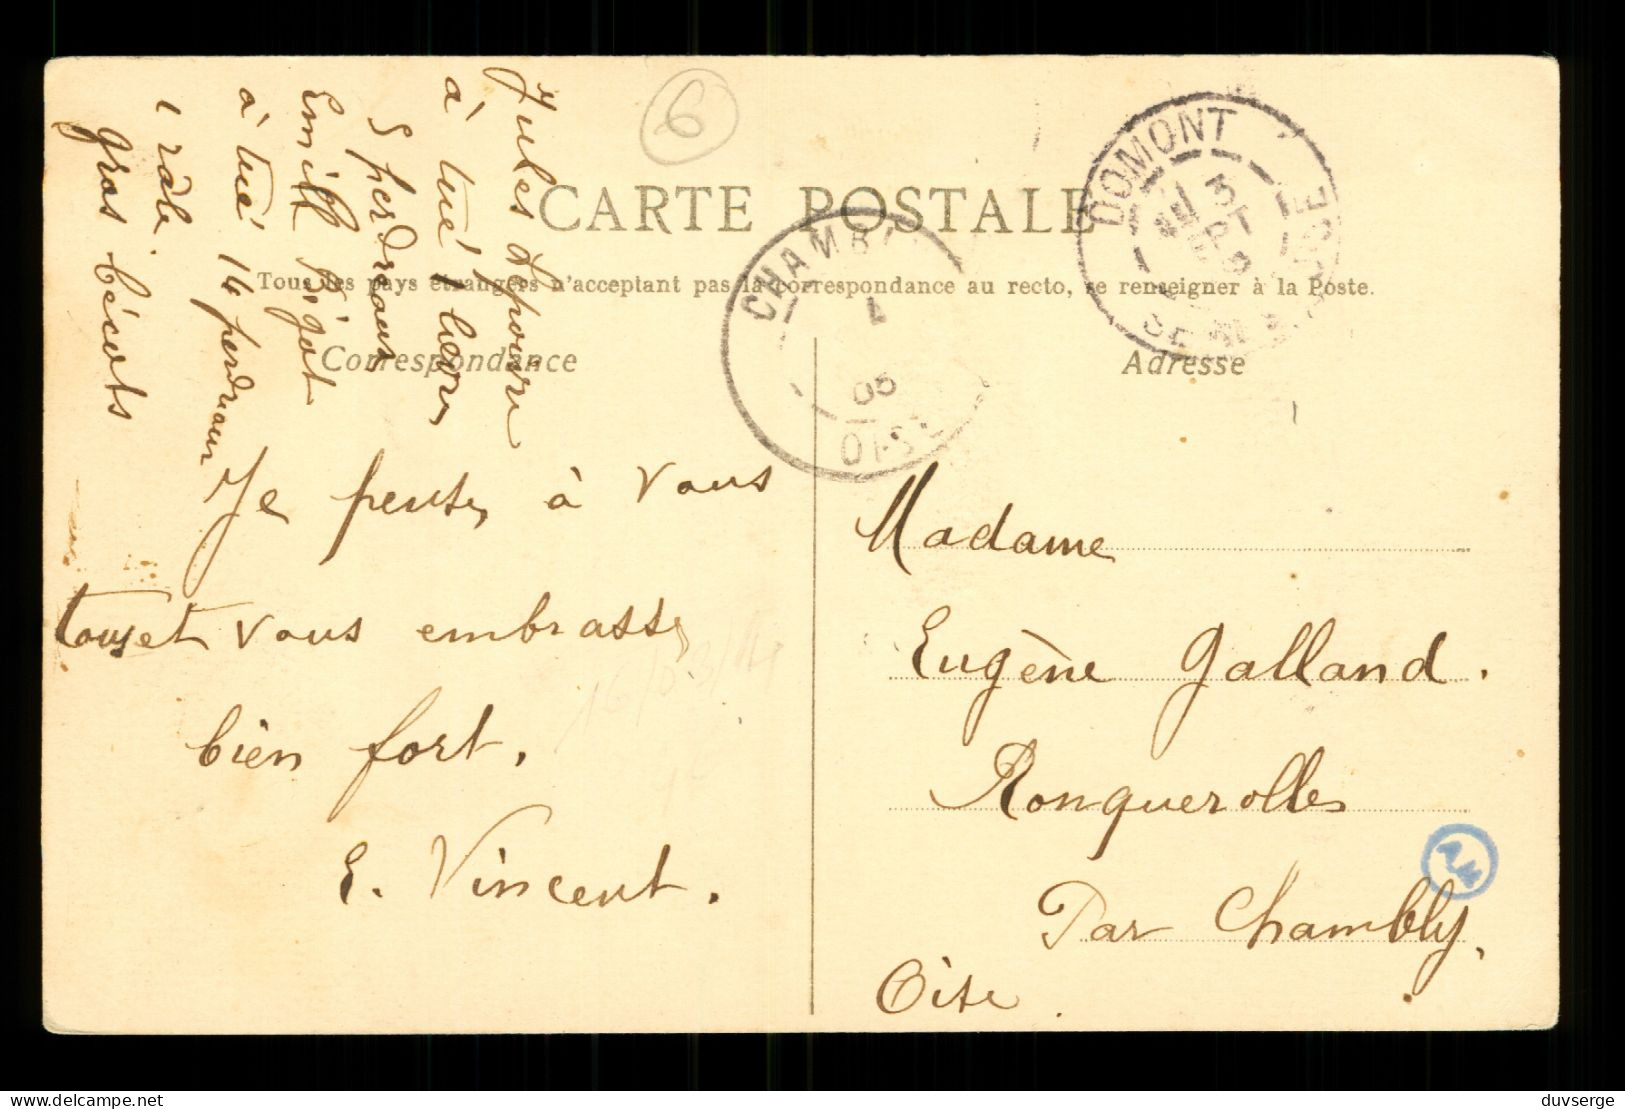 Jules Lhoure
à tué 1 lièvre,
5 perdreaux
Emille Bigot
à tué 14 perdreaux
1 râle.
gros bécots
6
CARTE POSTALE
Tous les pays étrangers n'acceptant pas la correspondance au recto, se renseigner à la Poste.
Correspondance
Adresse
DOMONT
3
SEPT
CHAMBLY
1
05
OISE
Je pense, à vous
tous et vous embrasse,
bien fort.
E. Vincent.
Madame
Eugène Galland.
Ronquerolles
Par Chambly,
Oise.
A.M
duvserge